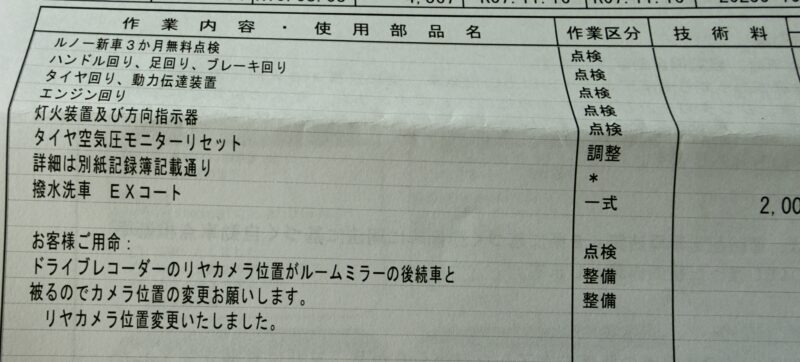 作業内容・使用部品名 作業区分 技術料
ルノー新車3か月無料点検 点検
ハンドル回り、足回り、ブレーキ回り 点検
タイヤ回り、動力伝達装置 点検
エンジン回り 点検
灯火装置及び方向指示器 点検
タイヤ空気圧モニターリセット 調整
詳細は別紙記録簿記載通り *
撥水洗車 EXコート 一式 2,00
お客様ご用命： 点検
ドライブレコーダーのリヤカメラ位置がルームミラーの後続車と 整備
被るのでカメラ位置の変更お願いします。 整備
リヤカメラ位置変更いたしました。